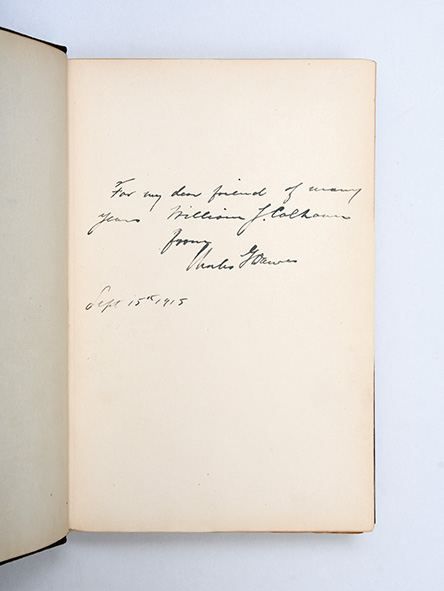 For my dear friend of many
years William J. Calhoun
from
Charles G Dawes
Sept 15th 1915